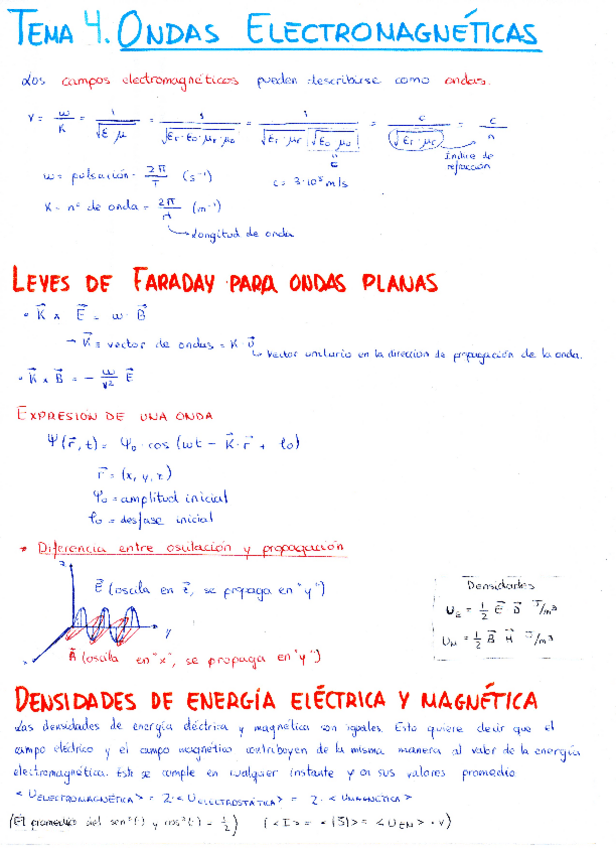 TEMA 4. ONDAS ELECTROMAGNÉTICAS
Los campos electromagnéticos pueden describirse como ondas.
V = w/K = 1/√(ε μ) = 1/√(εr·ε0·μr·μ0) = 1/(√(εr·μr) √(ε0 μ0)) = c/√(εr·μr) = c/n
Índice de refracción
w = pulsación = 2π/T (s⁻¹)
c = 3·10⁸ m/s
K = nº de onda = 2π/λ (m⁻¹)
Longitud de onda
LEYES DE FARADAY PARA ONDAS PLANAS
• K⃗ ∧ E⃗ = w · B⃗
→ K⃗ = vector de ondas = K · U⃗
vector unitario en la dirección de propagación de la onda.
• K⃗ ∧ B⃗ = − w/v² E⃗
EXPRESIÓN DE UNA ONDA
Ψ(r⃗, t) = Ψ0 · cos (wt − K⃗·r⃗ + φ0)
r⃗ = (x, y, z)
Ψ0 = amplitud inicial
φ0 = desfase inicial
* Diferencia entre oscilación y propagación
z
E⃗ (oscila en z, se propaga en "y")
y
x
B⃗ (oscila en "x", se propaga en "y")
Densidades
UE = 1/2 E⃗ D⃗ J/m³
UM = 1/2 B⃗ H⃗ J/m³
DENSIDADES DE ENERGÍA ELÉCTRICA Y MAGNÉTICA
Las densidades de energía eléctrica y magnética son iguales. Esto quiere decir que el
campo eléctrico y el campo magnético contribuyen de la misma manera al valor de la energía
electromagnética. Esto se cumple en cualquier instante y en sus valores promedio
<UELECTROMAGNÉTICA> = 2·<UELECTROSTÁTICA> = 2·<UMAGNÉTICA>
(El promedio del sen²() y cos²() = 1/2) (<I> = <|S⃗|> = <UEM>·v)